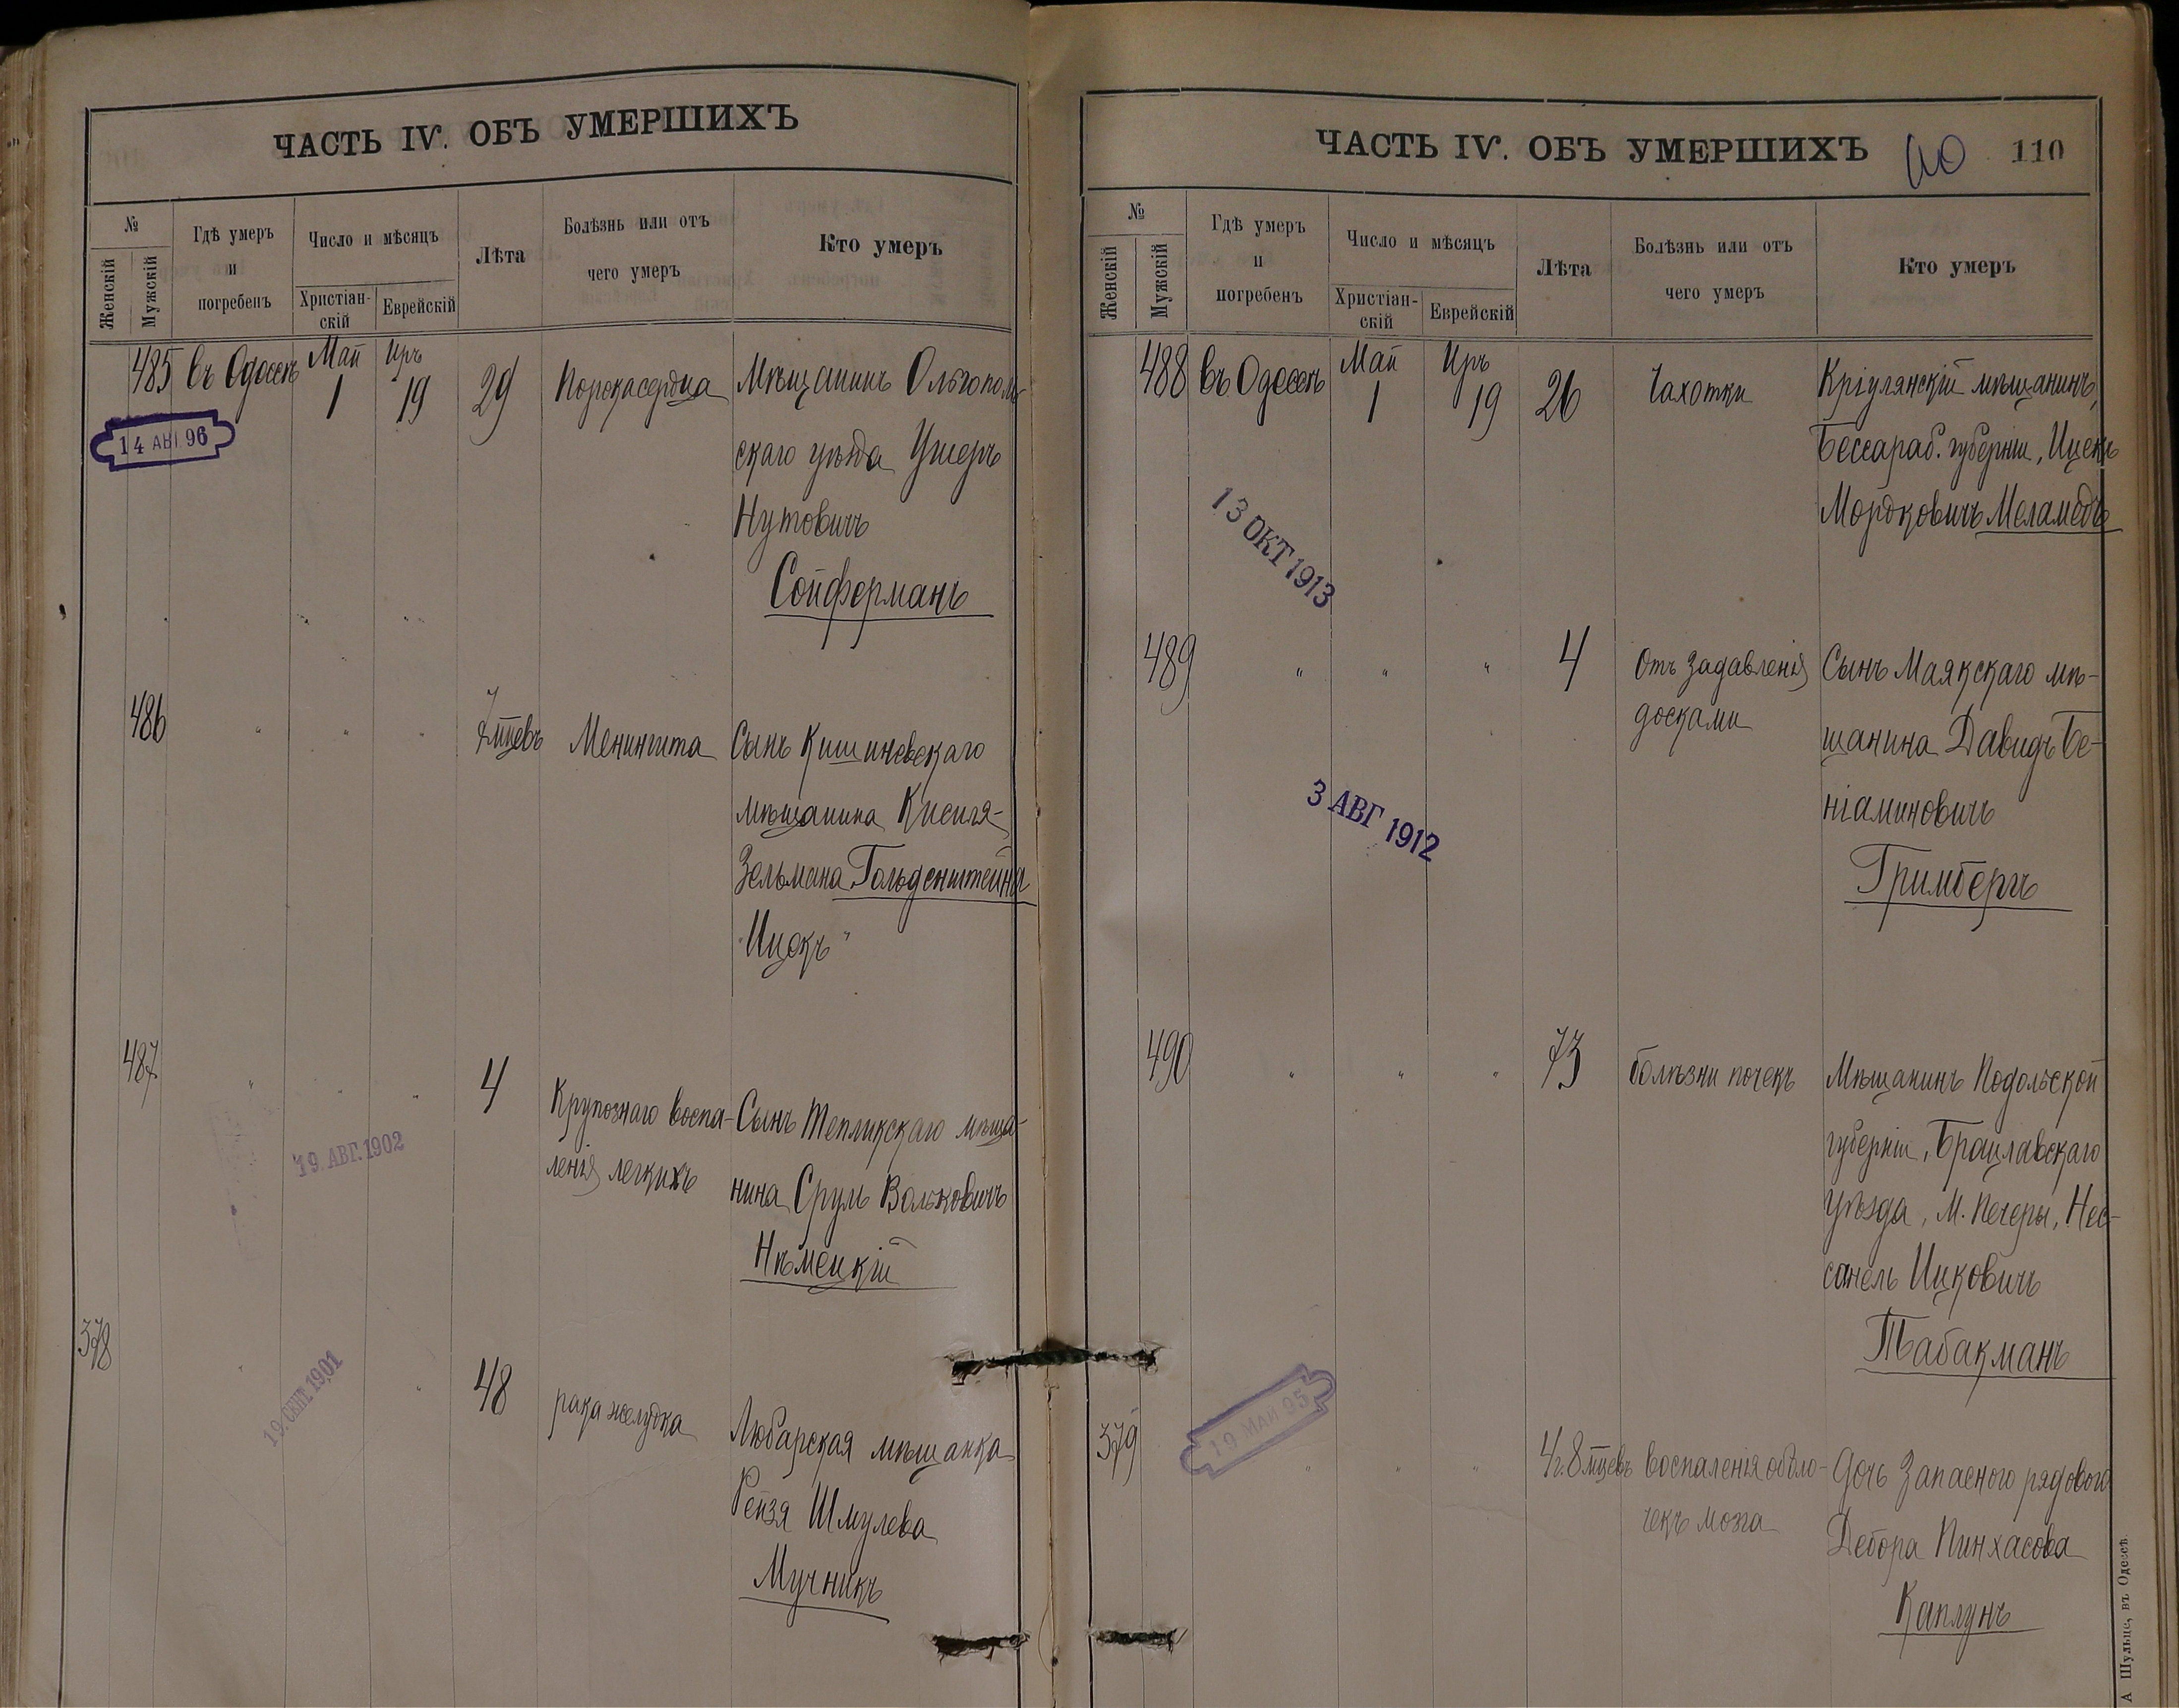 ЧАСТЬ IV. ОБЪ УМЕРШИХЪ
№
Женскій
Мужскій
Гдѣ умеръ
и
погребенъ
Число и мѣсяцъ
Христіан-
скій
Еврейскій
Лѣта
Болѣзнь или отъ
чего умеръ
Кто умеръ
485 въ Одессѣ Май 1 Иръ 19 29 Порока сердца Мѣщанинъ Ольгополь-
скаго уѣзда Ушеръ
Нутовичъ
Сойферманъ
14 АВГ 96
486 " " " 7 мцевъ Менингита Сынъ Кишиневскаго
мѣщанина Кисиля-
Зельмана Гольденштейна
"Ицекъ"
487 " " " 4 Крупознаго воспа- Сынъ Тепликскаго мѣща-
ленія легкихъ нина Сруль Вольковичъ
Нѣмецкій
19. АВГ. 1902
378 " " 48 рака желудка Любарская мѣщанка
Рейзя Шмулева
Мучникъ
19. СЕНТ 1901
ЧАСТЬ IV. ОБЪ УМЕРШИХЪ 110 110
№
Женскій
Мужскій
Гдѣ умеръ
и
погребенъ
Число и мѣсяцъ
Христіан-
скій
Еврейскій
Лѣта
Болѣзнь или отъ
чего умеръ
Кто умеръ
488 въ Одессѣ Май 1 Иръ 19 26 Чахотки Кріулянскій мѣщанинъ,
Бессараб. губерніи, Ицекъ
Мордковичъ Меламедъ
13 ОКТ 1913
489 " " " 4 Отъ задавленія Сынъ Маякскаго мѣ-
досками щанина Давидъ Бе-
ніаминовичъ
Гримбергъ
3 АВГ 1912
490 " " " 73 болѣзни почекъ Мѣщанинъ Подольской
губерніи, Брацлавскаго
уѣзда, М. Печеры, Нес-
санель Ицковичъ
Табакманъ
379 " " " 4 г. 8 мцевъ воспаленія оболо- Дочь Запасного рядового
чекъ мозга Дебора Пинхасова
Каплунъ
19 МАЙ 95
А Шульце, въ Одессѣ